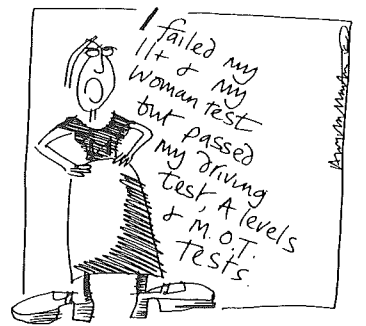 I failed my
11+ & my
woman test
but passed
my driving
test, A levels
& M.O.T.
tests.